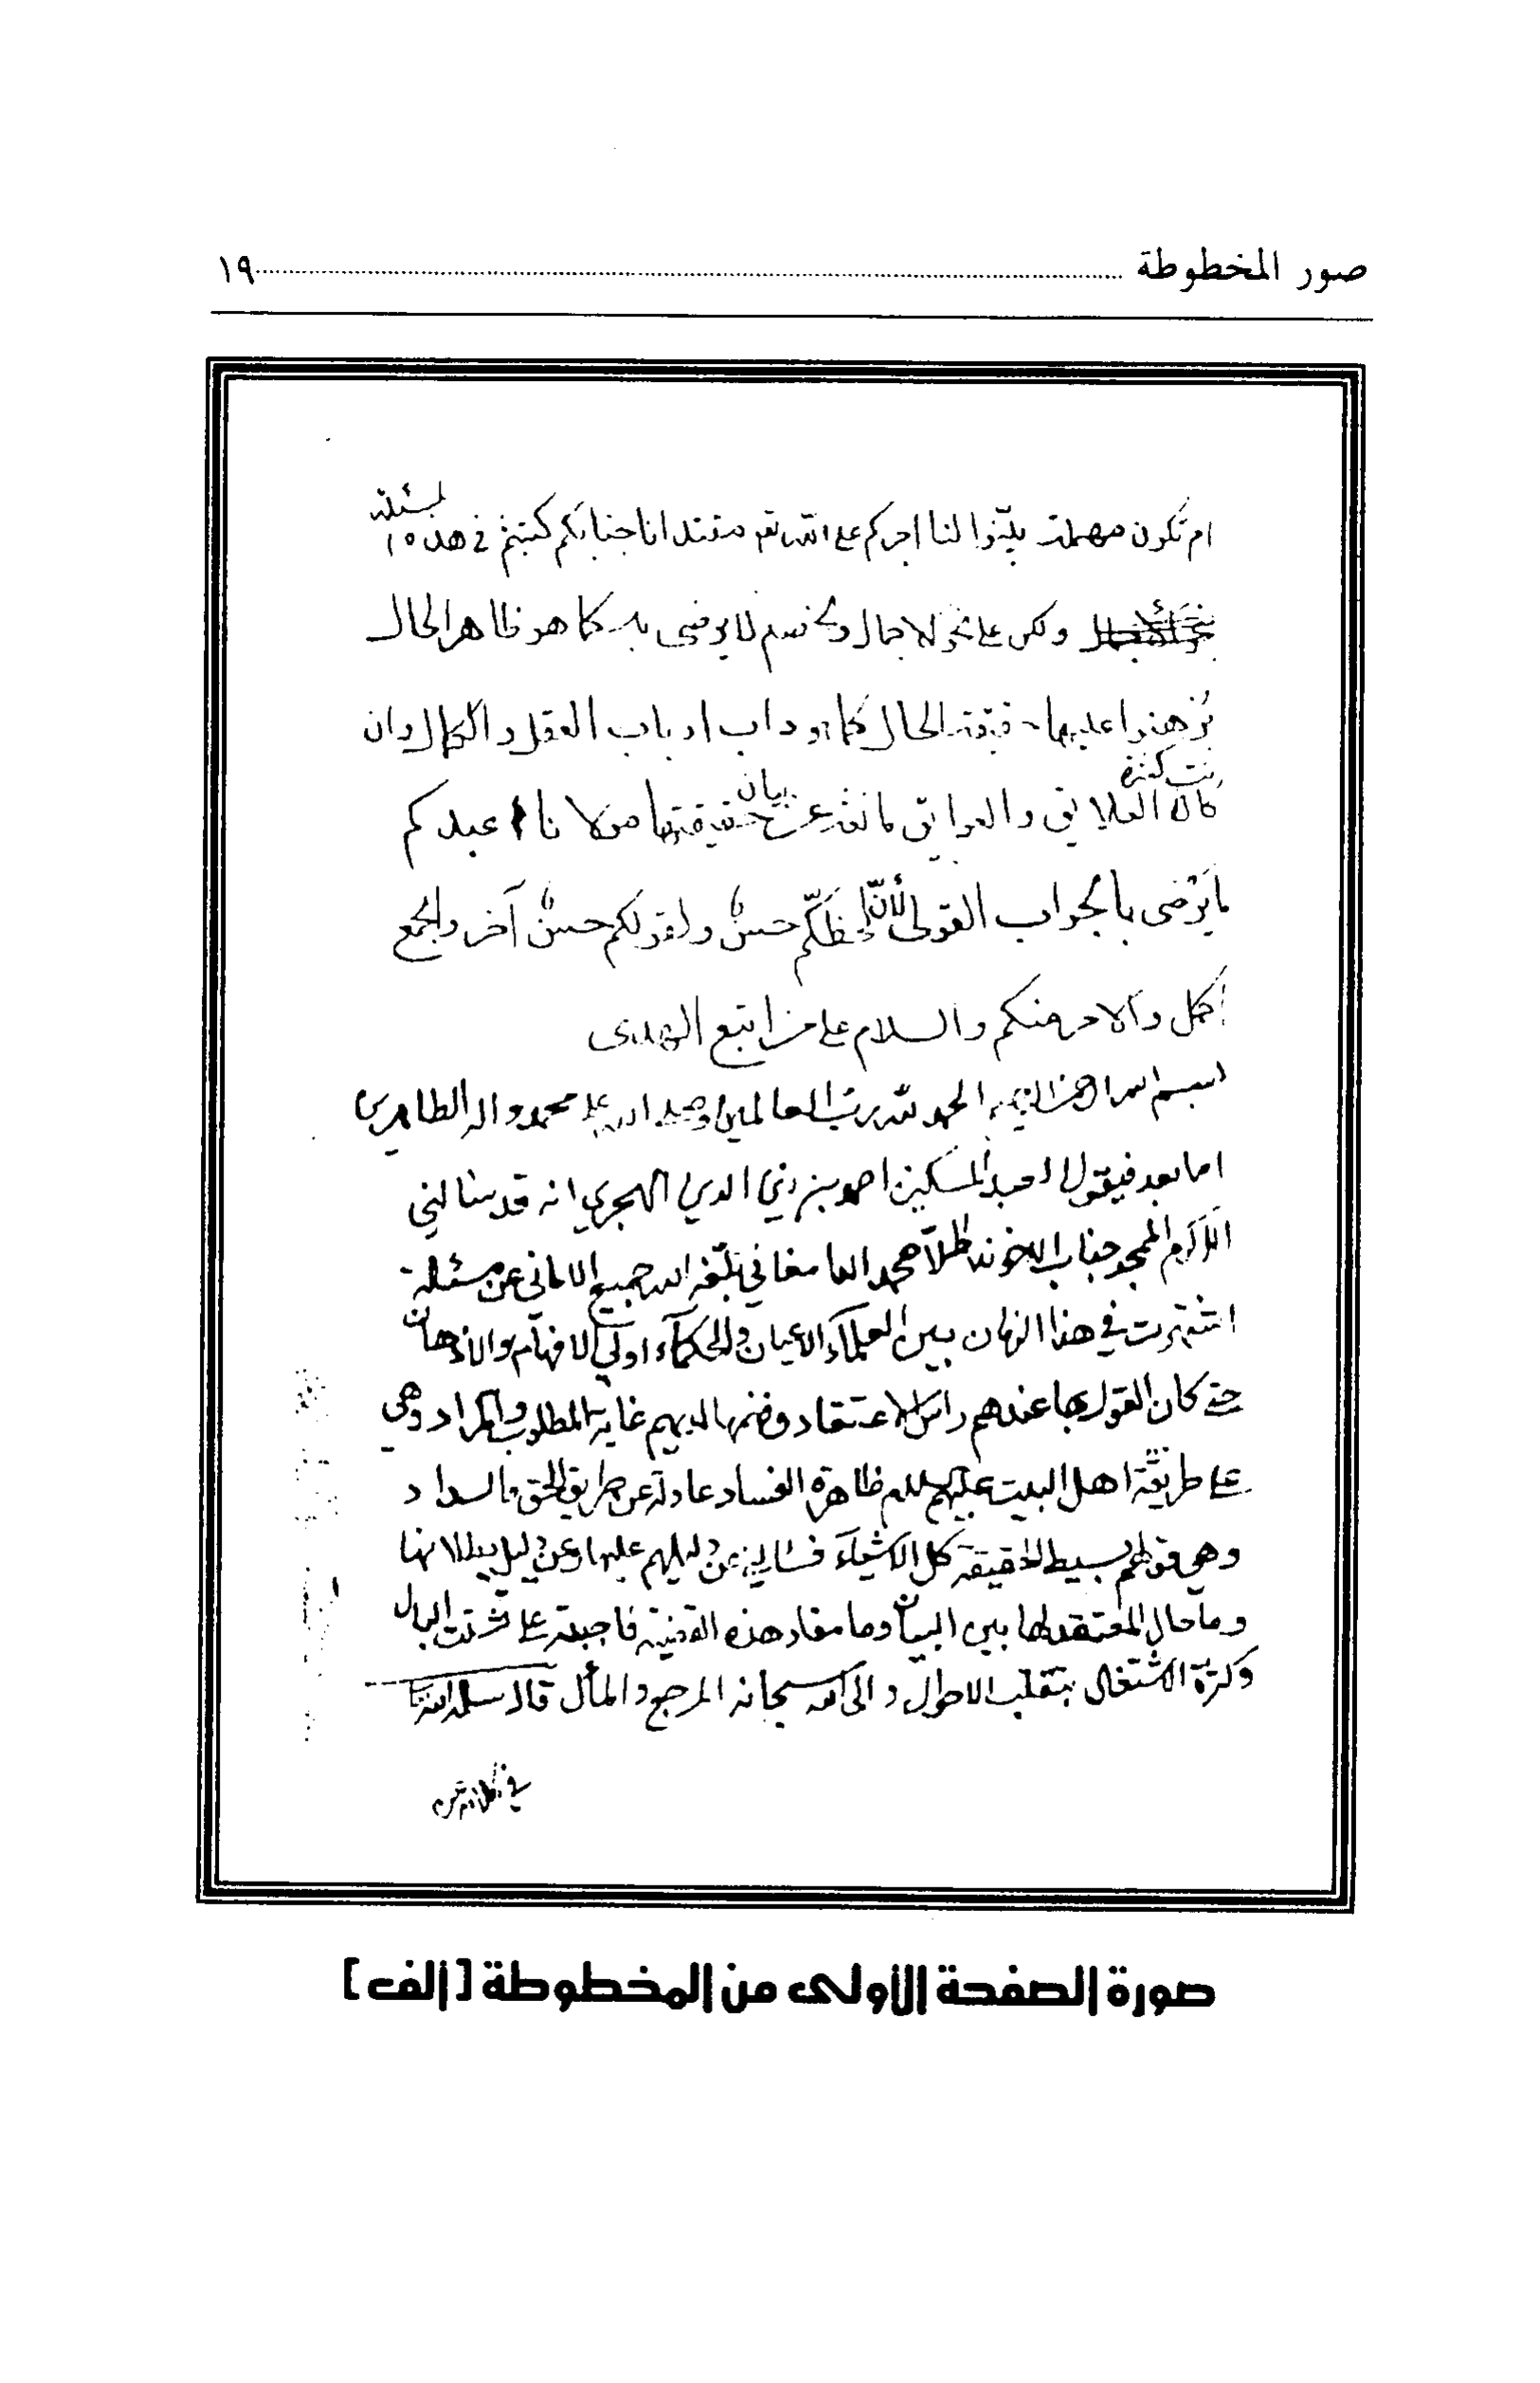 صور المخطوطة ١٩
ام تكون مهملة بيّنوا لنا اجركم على الله جنابكم كتبتم في هذه المسئلة
ولكن على نحو الاجمال لا يرضى به كما هو ظاهر الحال
الحال كما هو داب ارباب العقل والكمال وان
كانت كثرة العلايق والعوايق مانعة عن بيان حقيقتها مولانا عبدكم
ما يَرْضى بالجواب القولى لأنّ لخطّكم حسنٌ ولقولكم حسنٌ آخر والجمع
اكمل والامر منكم والسلام على من اتبع الهدى
بسم الله الرحمن الرحيم الحمد لله رب العالمين وصلى الله على محمد واله الطاهرين
اما بعد فيقول العبد المسكين احمد بن زين الدين الهجري انه قد سئالني
الاكرم الممجد جناب الاخوند الملّا محمد الدامغاني بلّغه الله جميع الاماني عن مسئلة
اشتهرت في هذا الزمان بين العلمآء الاعيان والحكمآء اولي الافهام والاذهان
حتى كان القول بها عندهم راس الاعتقاد وفهمها لديهم غاية المطلوب والمراد وهي
على طريقة اهل البيت عليهم السلام ظاهرة الفساد عادلة عن طريق الحق والسداد
وهي قولهم بسيط الحقيقة كل الاشيآء فسئالني عن دليلهم عليها وعن دليل بطلانها
وما حال المعتقد لها بين البيان وما مفاد هذه القضية فاجبته على تشتت البال
وكثرة الاشتغال بتقلب الاحوال والى الله سبحانه المرجع والمأل قال سلمه الله
صورة الصفحة الأولى من المخطوطة [ألف]